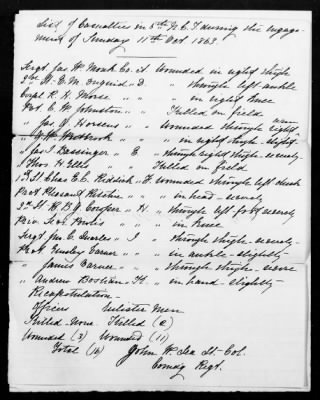 List of Casualties in 5th N.C.T. during the engage-
ment of Sunday 11th Oct 1863.
Sergt Jas W. Monk Co. A Wounded in right thigh
" D. " through left ankle
Corpl R. H. Morse " " " in right knee
Pvt C. W. Johnston " " Killed on field
" Jas A. " " Wounded through right arm
" " " " in right thigh - slightly
" Jas S. Bassinger " E. " through right thigh - severely
" Thos H. Ellis " " Killed on field
1st Lt Chas E. C. Riddick " F. wounded through left cheek
Pvt Pleasant " " " in head - severely
2nd Lt H. B. Y. " H. " through left foot severely
Priv. Powlis " " " in knee
Sergt Jno. C. Quarles " I " through thigh - severely -
Pvt Tinsley Carner " " " in ankle - slightly
" James Carner " " " through thigh - severe
" Andrew " K. " in hand - slightly
Recapitulation -
Officers Enlisted Men
Killed - None - Killed (2)
Wounded (3) Wounded (11)
Total (16) John W. Lea Lt. Col.
Comdg Regt.